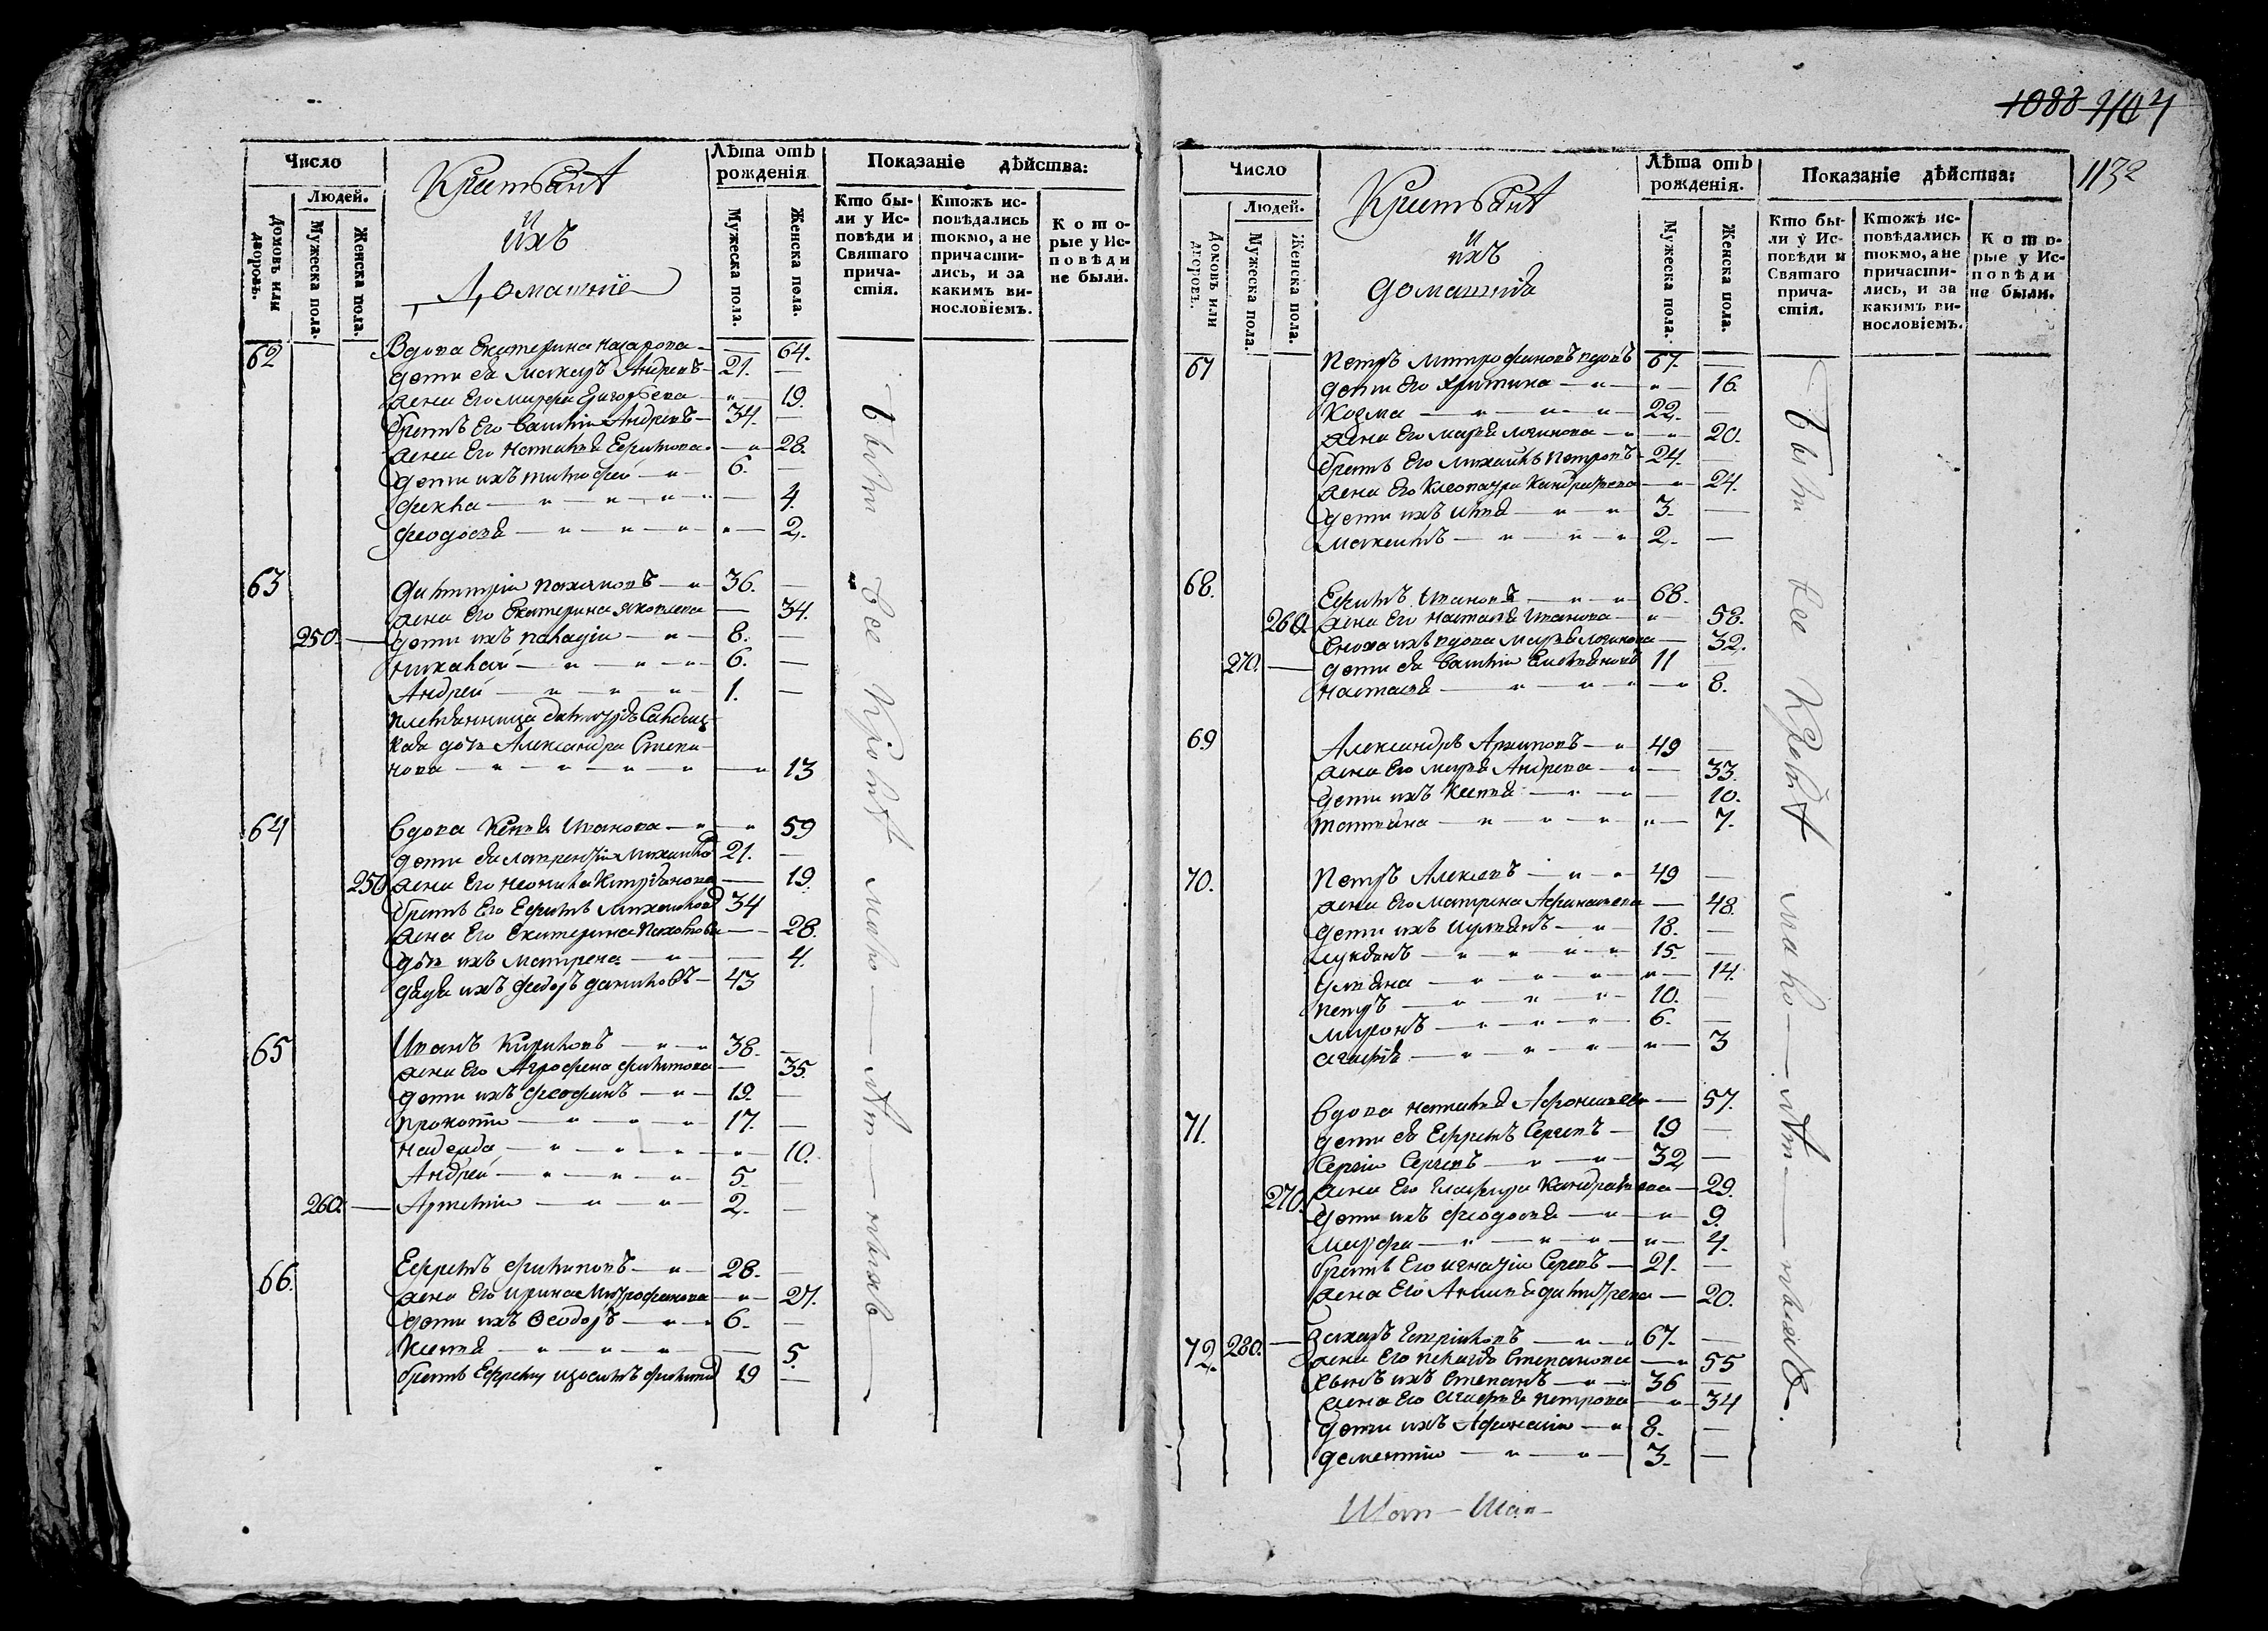 1088 1104
1132
Число
Людей.
Домовъ или дворовъ.
Мужеска пола.
Женска пола.
Крестьянѣ
и
ихъ
Домашніе
Лѣта отъ рожденія
Мужеска пола.
Женска пола.
Показаніе дѣйства:
Кто бы-
ли у Ис-
повѣди и
Святаго
прича-
стія.
Ктожъ ис-
повѣдались
токмо, а не
причасти-
лись, и за
какимъ ви-
нословіемъ.
Кото-
рые у Ис-
повѣди
не были.
62 Вдова Екатерина Назарова — 64.
дети ея Макаръ Андреевъ — 21. —
жена его Марфа Григорьева — 19.
братъ его Василій Андреевъ — 34. —
жена его Наталья Ефимова — 28.
дети ихъ Тимофей — 6. —
Фекла — 4.
Феодосья — 2.
63 Димитрій Пахомовъ — 36. —
жена его Екатерина Яковлева — 34.
250. — дети ихъ Палладій — 8. —
Николай — 6. —
Андрей — 1. —
племянница
дочь Александра Степа-
нова — 13
64 Вдова Ксенья Иванова — 59
дети ея Лаврентій Михайло 21. —
250 жена его Неонила — 19.
братъ его Ефимъ Михайловъ 34
жена его Екатерина — 28.
дочь ихъ Матрена — 4.
дядя ихъ Федоръ Даниловъ — 43
65 Иванъ Кириловъ — 38. —
жена его Агрофена Филипова — 35.
дети ихъ Феофанъ — 19. —
Прокопій — 17. —
Надежда — 10.
Андрей — 5. —
260. — Артемій — 2. —
66. Ефремъ Филиповъ — 28. —
жена его Ирина Митрофанова — 27.
дети ихъ Ѳеодоръ — 6. —
Ксенья — 5.
братъ Ефрему Изосимъ Филипов 19 —
Были Все Кромѣ мало — лѣт — ныхъ —
Число
Людей.
Домовъ или дворовъ.
Мужеска пола.
Женска пола.
Крестьянѣ
и
ихъ
домашнія
Лѣта отъ рожденія.
Мужеска пола.
Женска пола.
Показаніе дѣйства:
Кто бы-
ли у Ис-
повѣди и
Святаго
прича-
стія.
Ктожъ ис-
повѣдались
токмо, а не
причасти-
лись, и за
какимъ ви-
нословіемъ.
Кото-
рые у Ис-
повѣди
не были.
67 Петръ Митрофановъ вдовъ 67. —
дети его Христина — 16.
Козма — 22. —
жена его Марья Логинова — 20.
братъ его Михайлъ Петровъ — 24. —
жена его Клеопатра Кандратьева — 24.
дети ихъ Илья — 3. —
Максимъ — 2. —
68. Ефимъ Ивановъ — 68.
260. жена его Настасья Иванова — 58.
сноха ихъ вдова Марья Логинова — 32.
270. — дети ея Василій Емельяновъ 11 —
Настасья — 8.
69 Александръ Архиповъ — 49 —
жена его Марья Андреева — 33.
дети ихъ Ксенья — 10.
Татьяна — 7.
70. Петръ Алексеевъ — 49 —
жена его Матрена Афанасьева — 48.
дети ихъ — 18. —
Лукьянъ — 15. —
Ульяна — 14.
Петръ — 10. —
Миронъ — 6. —
Агафья — 3
71. Вдова Наталья Афонасьева — 57.
дети ея Ефремъ Сергеевъ — 19 —
Сергій Сергеевъ — 32 —
270. жена его Глафира Кандратьева — 29.
дети ихъ Феодосья — 9.
Марфа — 4.
братъ его Игнатій Сергеевъ — 21. —
жена его Аксинья Димитрева — 20.
72. 280. — Захаръ Гавриловъ — 67. —
жена его Пелагея Степанова — 55
сынъ ихъ Степанъ — 36 —
жена его Агафья Петрова — 34
дети ихъ Афанасій — 8. —
Дементій — 3. —
Были все Кромѣ мало — лѣт — ныхъ.